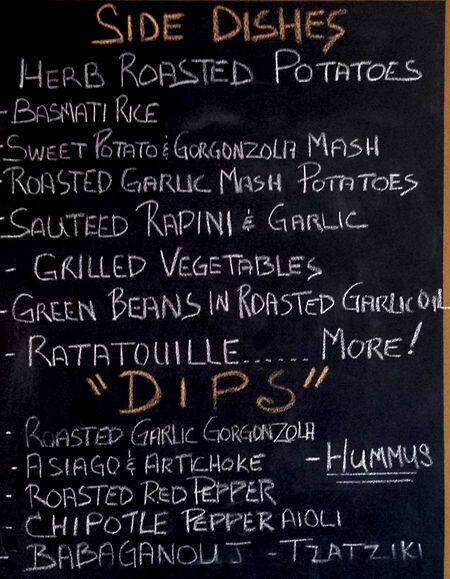 SIDE DISHES
HERB ROASTED POTATOES
- BASMATI RICE
- SWEET POTATO & GORGONZOLA MASH
- ROASTED GARLIC MASH POTATOES
- SAUTEED RAPINI & GARLIC
- GRILLED VEGETABLES
- GREEN BEANS IN ROASTED GARLIC OIL
- RATATOUILLE...... MORE!
"DIPS"
- ROASTED GARLIC GORGONZOLA
- ASIAGO & ARTICHOKE - HUMMUS
- ROASTED RED PEPPER
- CHIPOTLE PEPPER AIOLI
- BABAGANOUJ - TZATZIKI